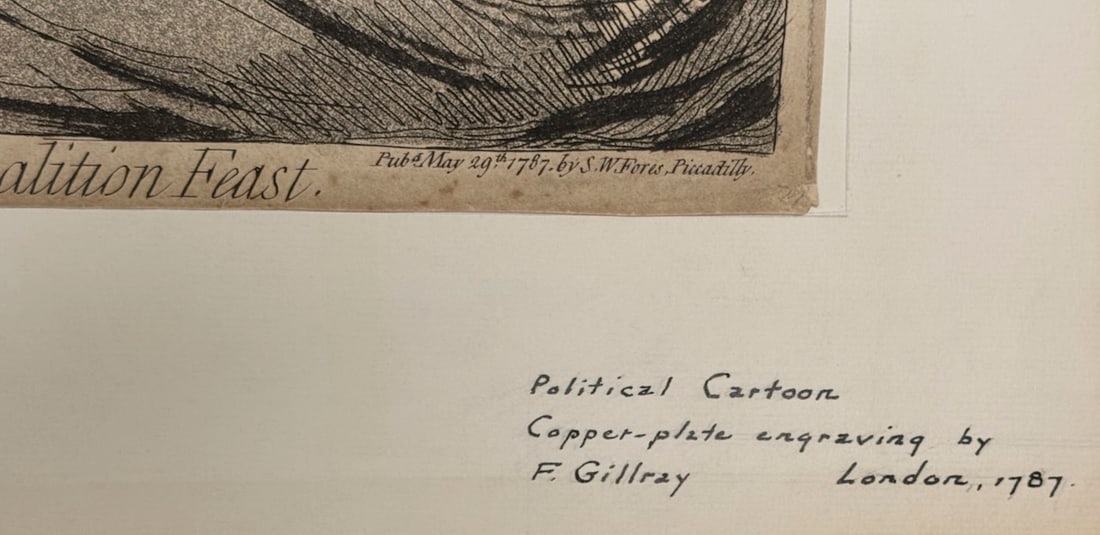 alition Feast.
Pubd. May 29th 1787. by S. W. Fores, Piccadilly.
Political Cartoon
Copper-plate engraving by
F. Gillray London, 1787.